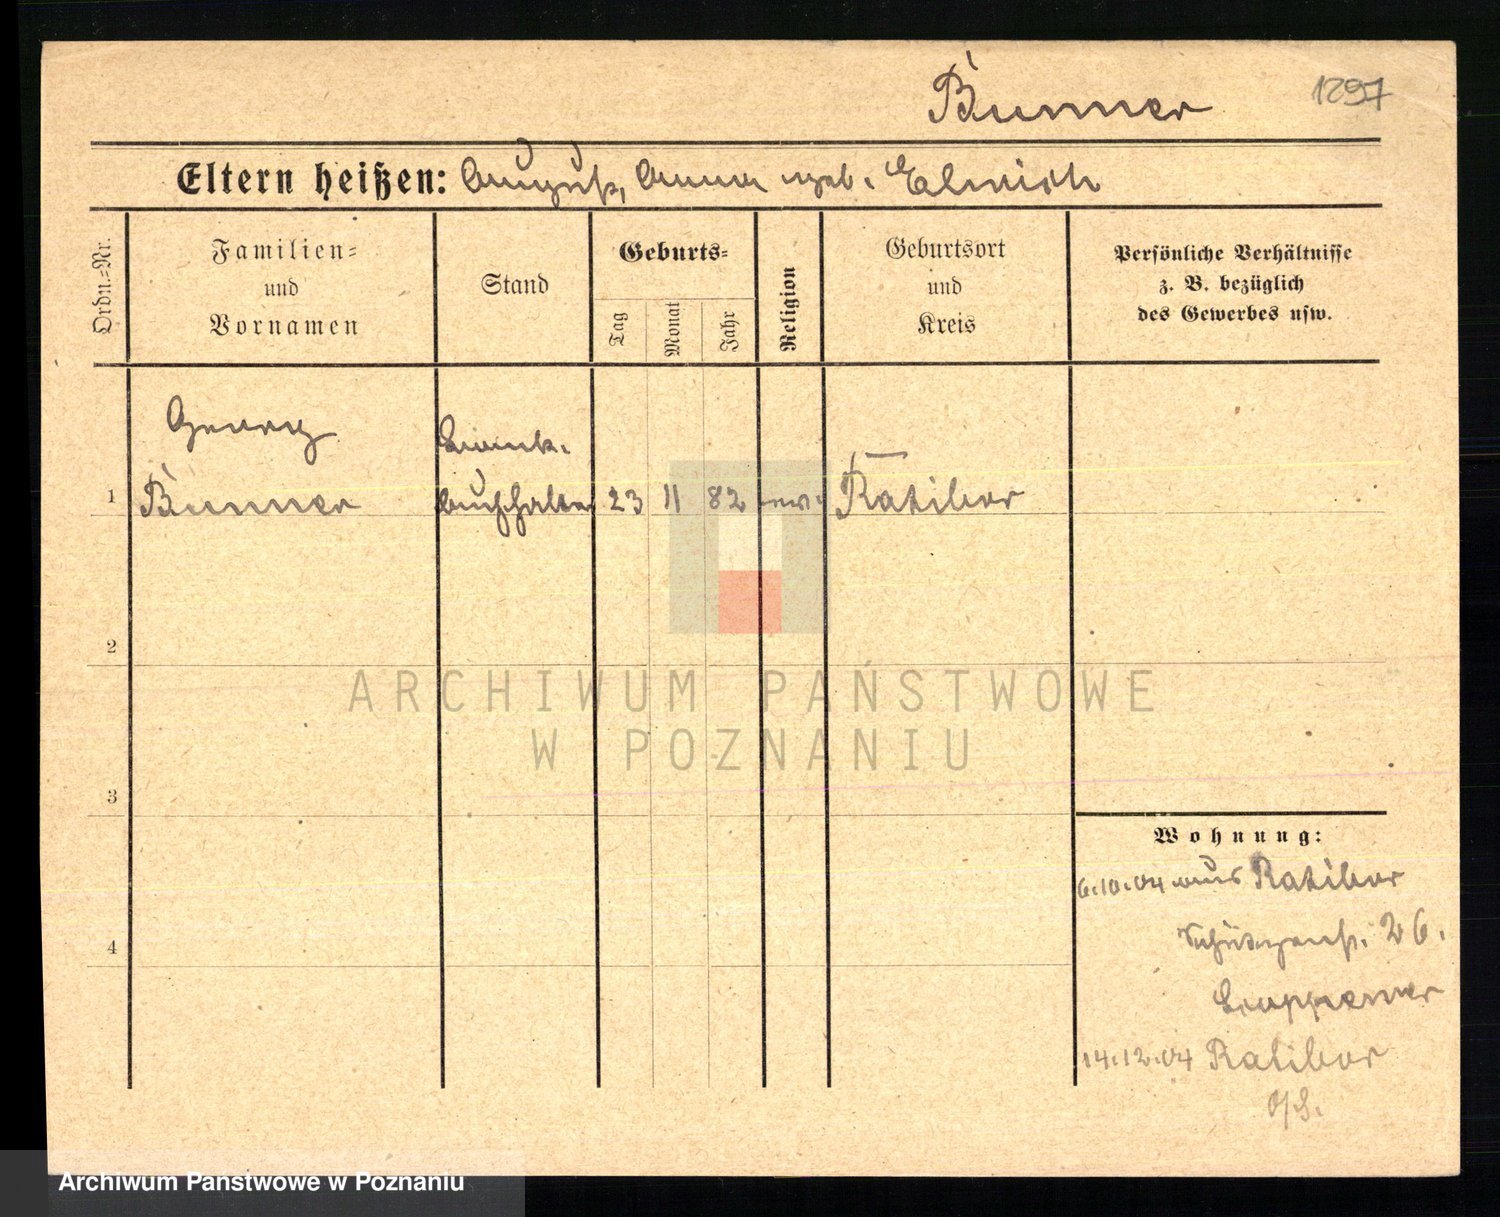 Bunner
1297
Eltern heißen: August, Anna geb. Elsnich
Ordn.-Nr.
Familien-
und
Vornamen
Stand
Geburts-
Tag
Monat
Jahr
Religion
Geburtsort
und
Kreis
Persönliche Verhältnisse
z. B. bezüglich
des Gewerbes usw.
Georg
Bank-
1 Bunner buchhalter 23 11 82 ev. Ratibor
2
ARCHIWUM PAŃSTWOWE
W POZNANIU
3
Wohnung:
6.10.04 aus Ratibor
Schützenstr. 26.
4
14.12.04 Ratibor
O/S.
Archiwum Państwowe w Poznaniu